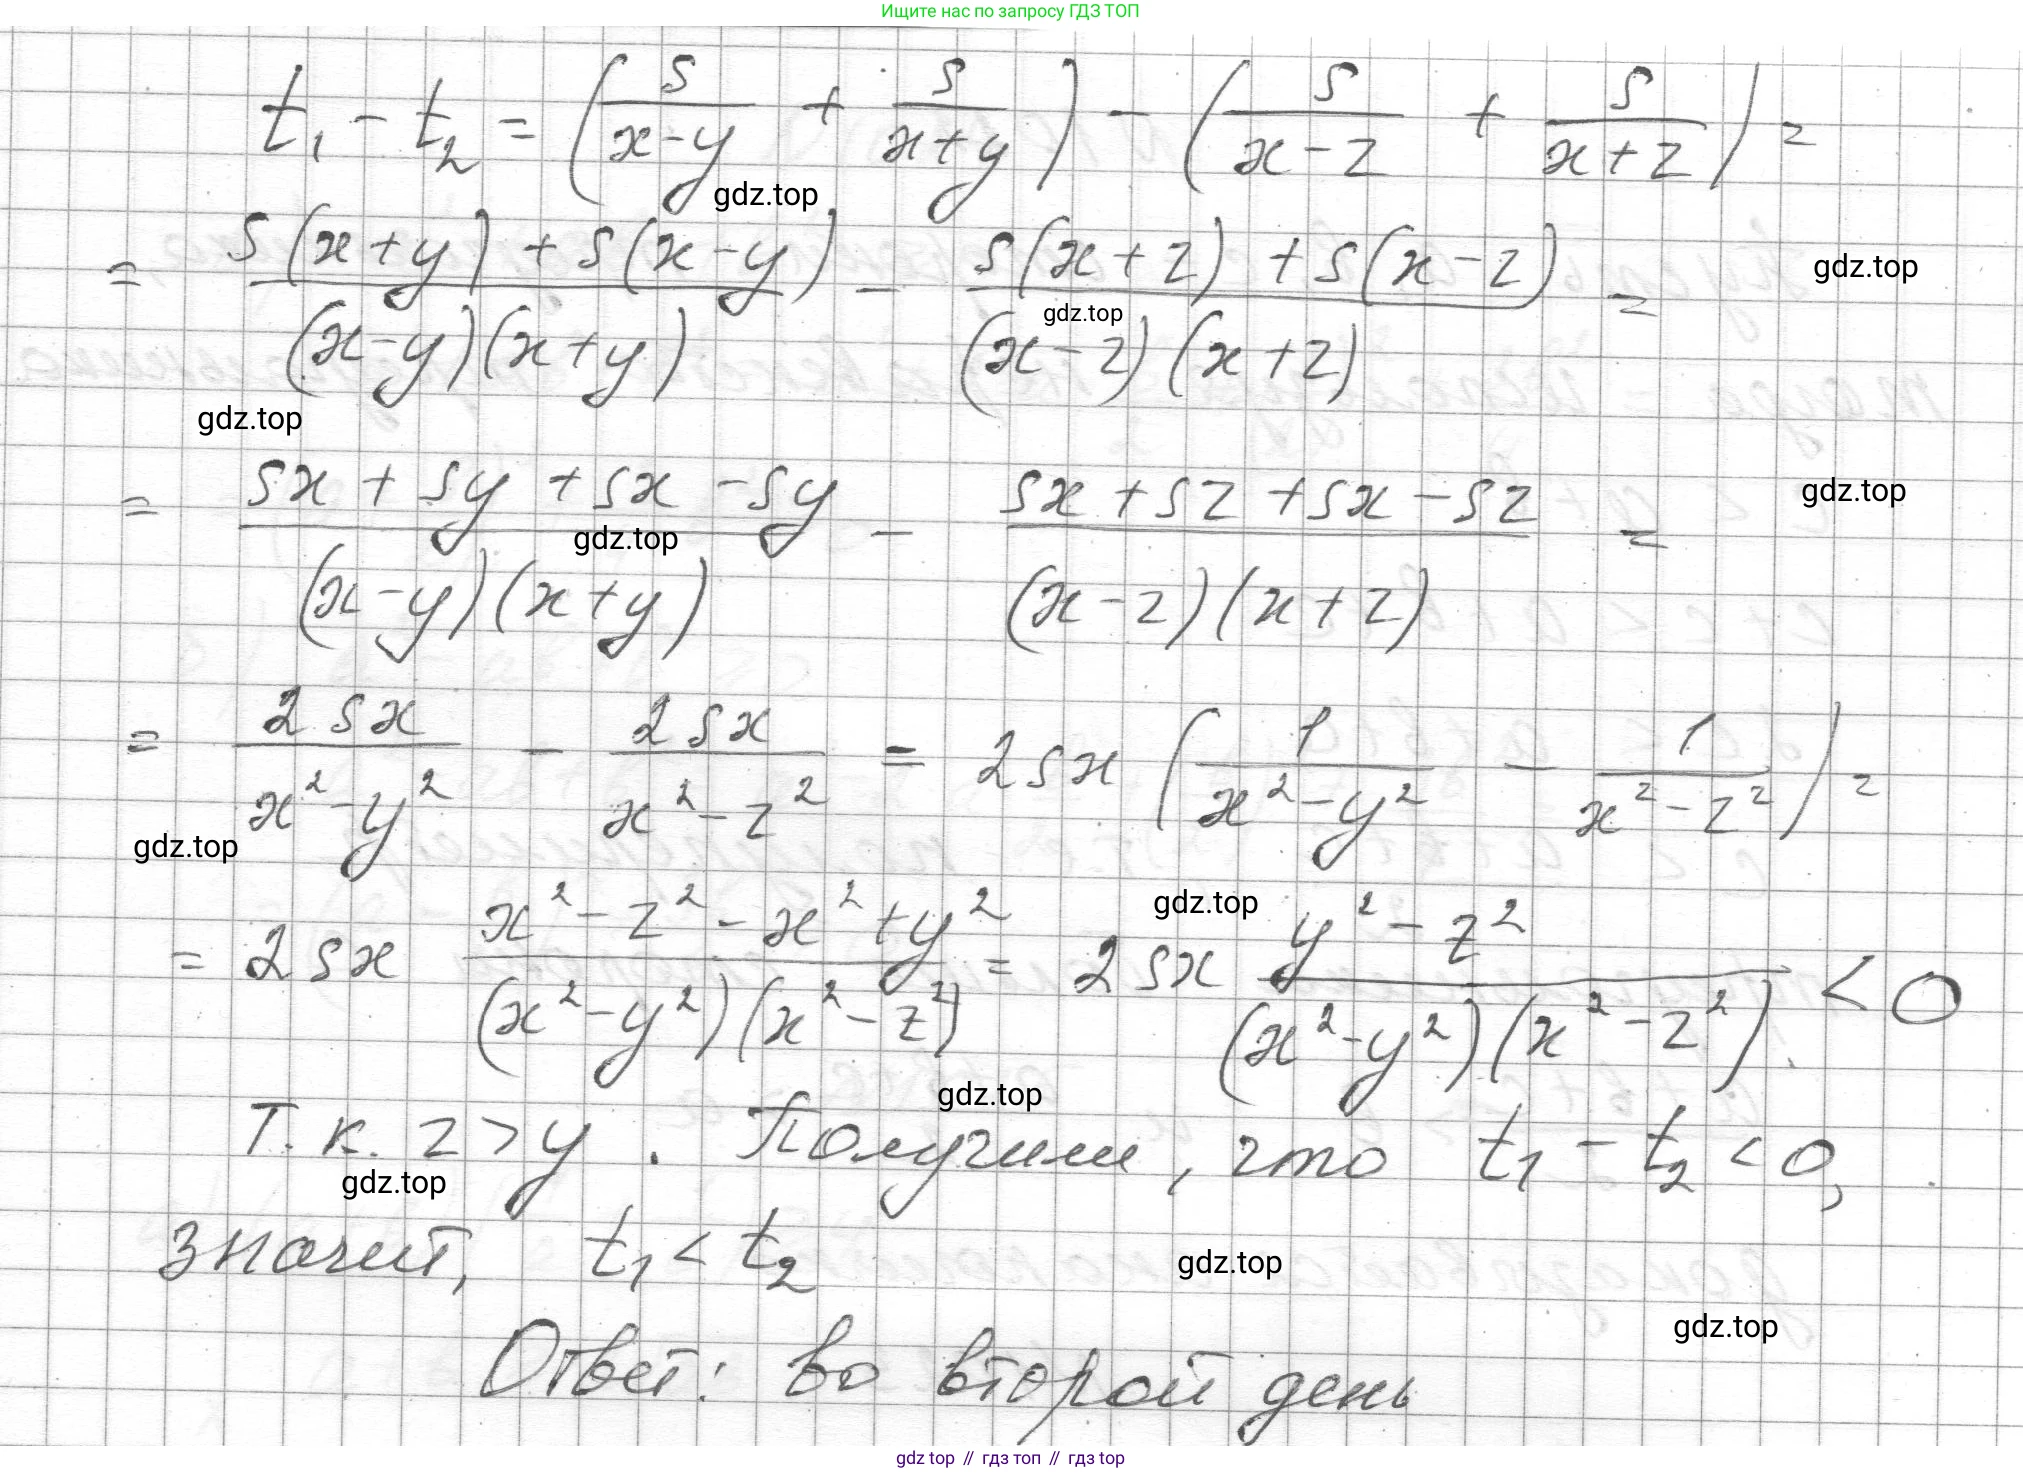 Ищите нас по запросу ГДЗ ТОП
t₁ - t₂ = (s/(x-y) + s/(x+y)) - (s/(x-z) + s/(x+z)) =
gdz.top
= (s(x+y) + s(x-y))/((x-y)(x+y)) - (s(x+z) + s(x-z))/((x-z)(x+z)) =
gdz.top
gdz.top
gdz.top
= (sx + sy + sx - sy)/((x-y)(x+y)) - (sx + sz + sx - sz)/((x-z)(x+z)) =
gdz.top
gdz.top
= 2sx/(x²-y²) - 2sx/(x²-z²) = 2sx (1/(x²-y²) - 1/(x²-z²)) =
gdz.top
gdz.top
= 2sx (x²-z²-x²+y²)/((x²-y²)(x²-z²)) = 2sx (y²-z²)/((x²-y²)(x²-z²)) < 0
gdz.top
т.к. z > y . Получим, что t₁ - t₂ < 0,
gdz.top
значит, t₁ < t₂
gdz.top
gdz.top
Ответ: во второй день
gdz top // гдз топ // гдз top